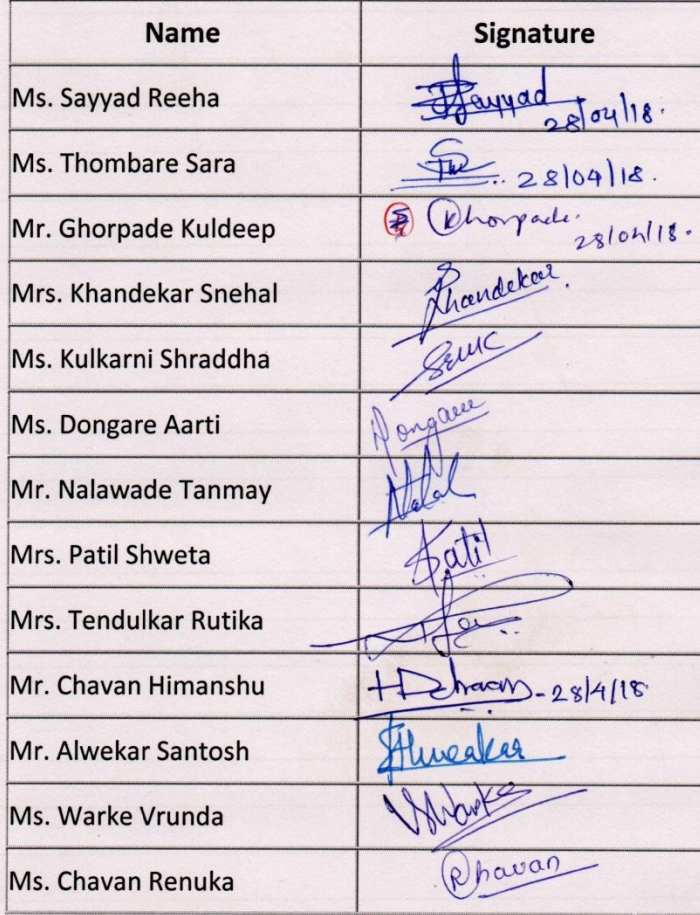 Name Signature
Ms. Sayyad Reeha Sayyad 28/04/18.
Ms. Thombare Sara 28/04/18.
Mr. Ghorpade Kuldeep Ghorpade. 28/04/18.
Mrs. Khandekar Snehal Khandekar.
Ms. Kulkarni Shraddha
Ms. Dongare Aarti Dongare
Mr. Nalawade Tanmay
Mrs. Patil Shweta Patil
Mrs. Tendulkar Rutika
Mr. Chavan Himanshu HDchavan - 28/4/18
Mr. Alwekar Santosh SAlwekar
Ms. Warke Vrunda VWarke
Ms. Chavan Renuka Rhavan